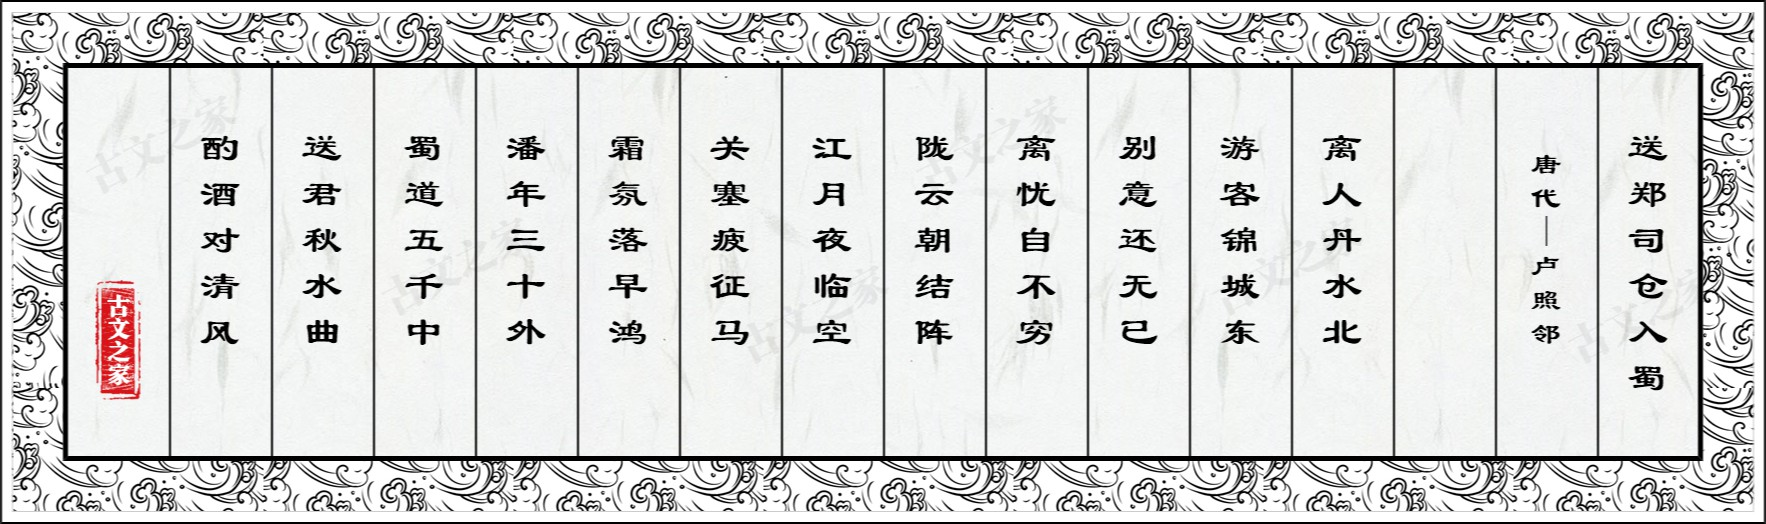 送郑司仓入蜀
唐代—卢照邻
离人丹水北
游客锦城东
别意还无已
离忧自不穷
陇云朝结阵
江月夜临空
关塞疲征马
霜氛落早鸿
潘年三十外
蜀道五千中
送君秋水曲
酌酒对清风
古文之家